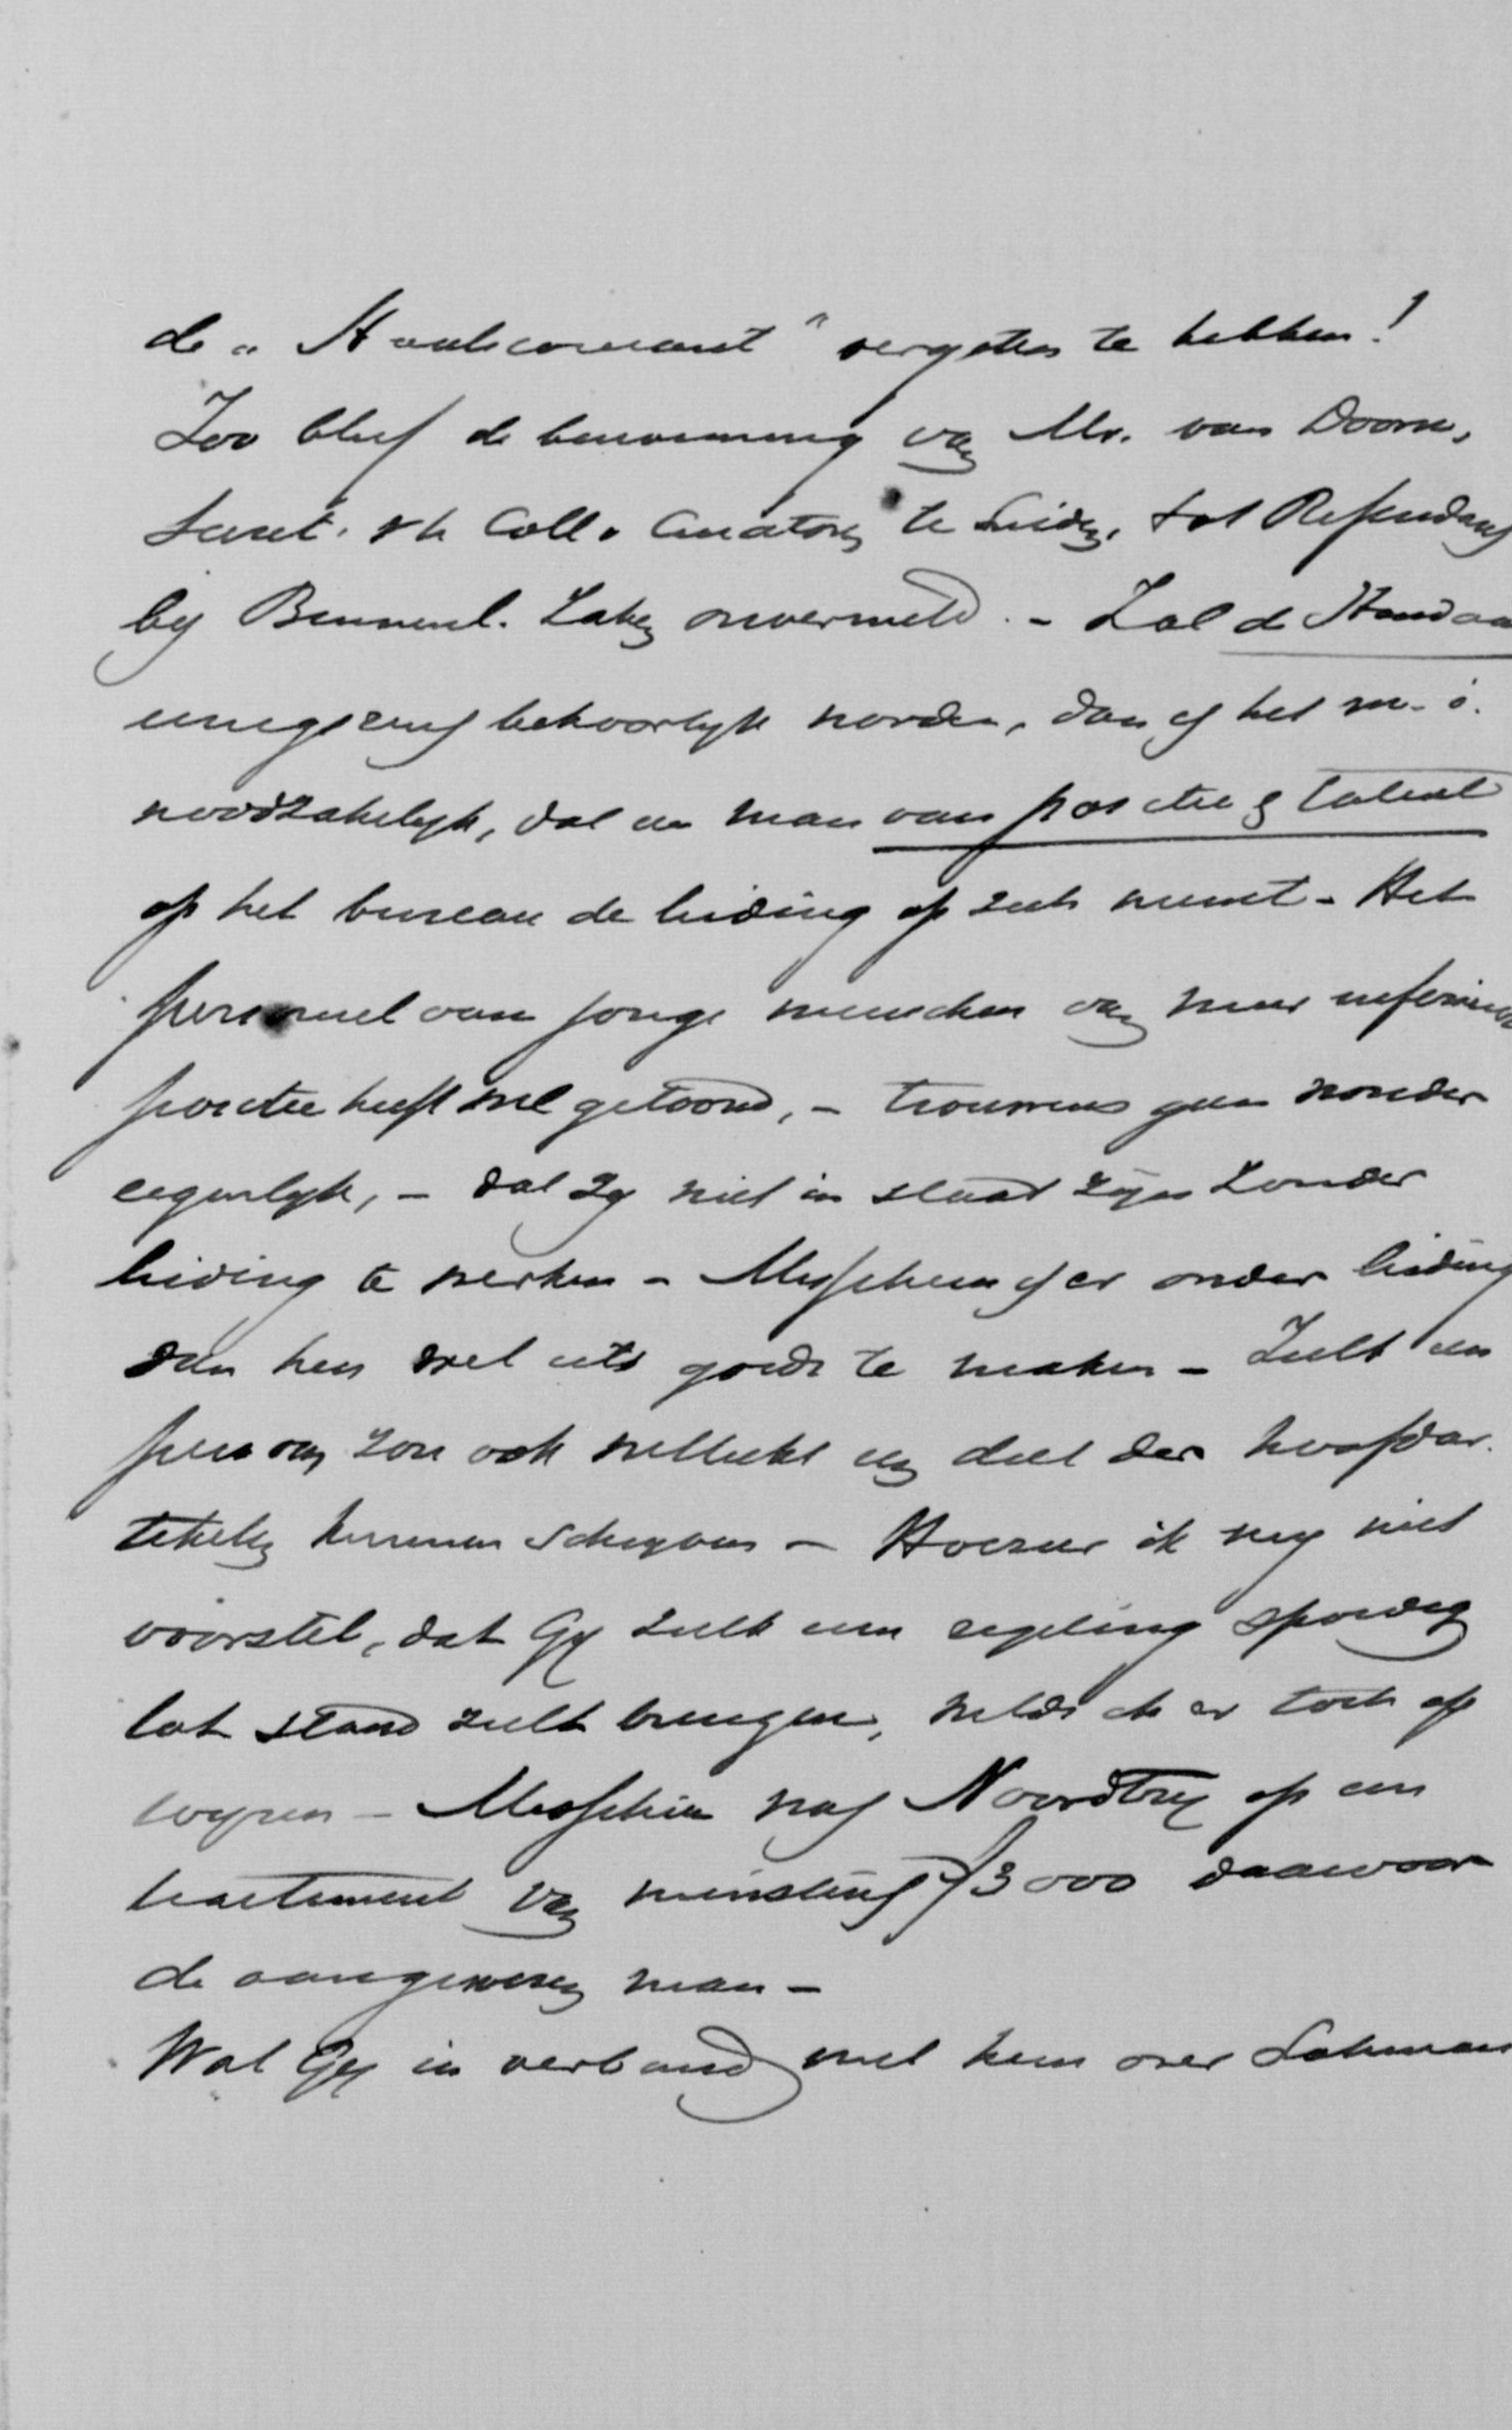 de „Staatscourant" vergeten te hebben!
Zoo bleef de benoeming van Mr. van Doorn,
Secret. v/h Coll. Curatoren te Leiden, tot Referendaris
bij Binnenl. Zaken onvermeld. - Zal de Standaard
eenigszins behoorlijk worden, dan is het m. i.
noodzakelijk, dat een man van positie & talent
op het bureau de leiding op zich neemt - Het
personeel van jonge menschen van meer inferieure
positie heeft wel getoond, - trouwens geen wonder
eigenlijk, - dat zij niet in staat zijn zonder
leiding te werken - Misschien is er onder leiding
van hen wel iets goeds te maken - Zulk een
persoon zou ook wellicht een deel der hoofdar-
tikelen kunnen schrijven - Hoezeer ik mij niet
voorstel, dat Gij zulk een regeling spoedig
tot stand zult brengen, wilde ik er toch op
wijzen - Misschien was Noordtzij op een
tractement van minstens ƒ3000 daarvoor
de aangewezen man -
Wat Gij in verband met hem over Lohman